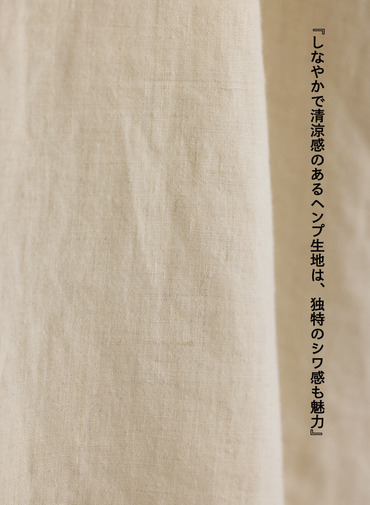 『しなやかで清涼感のあるヘンプ生地は、独特のシワ感も魅力』